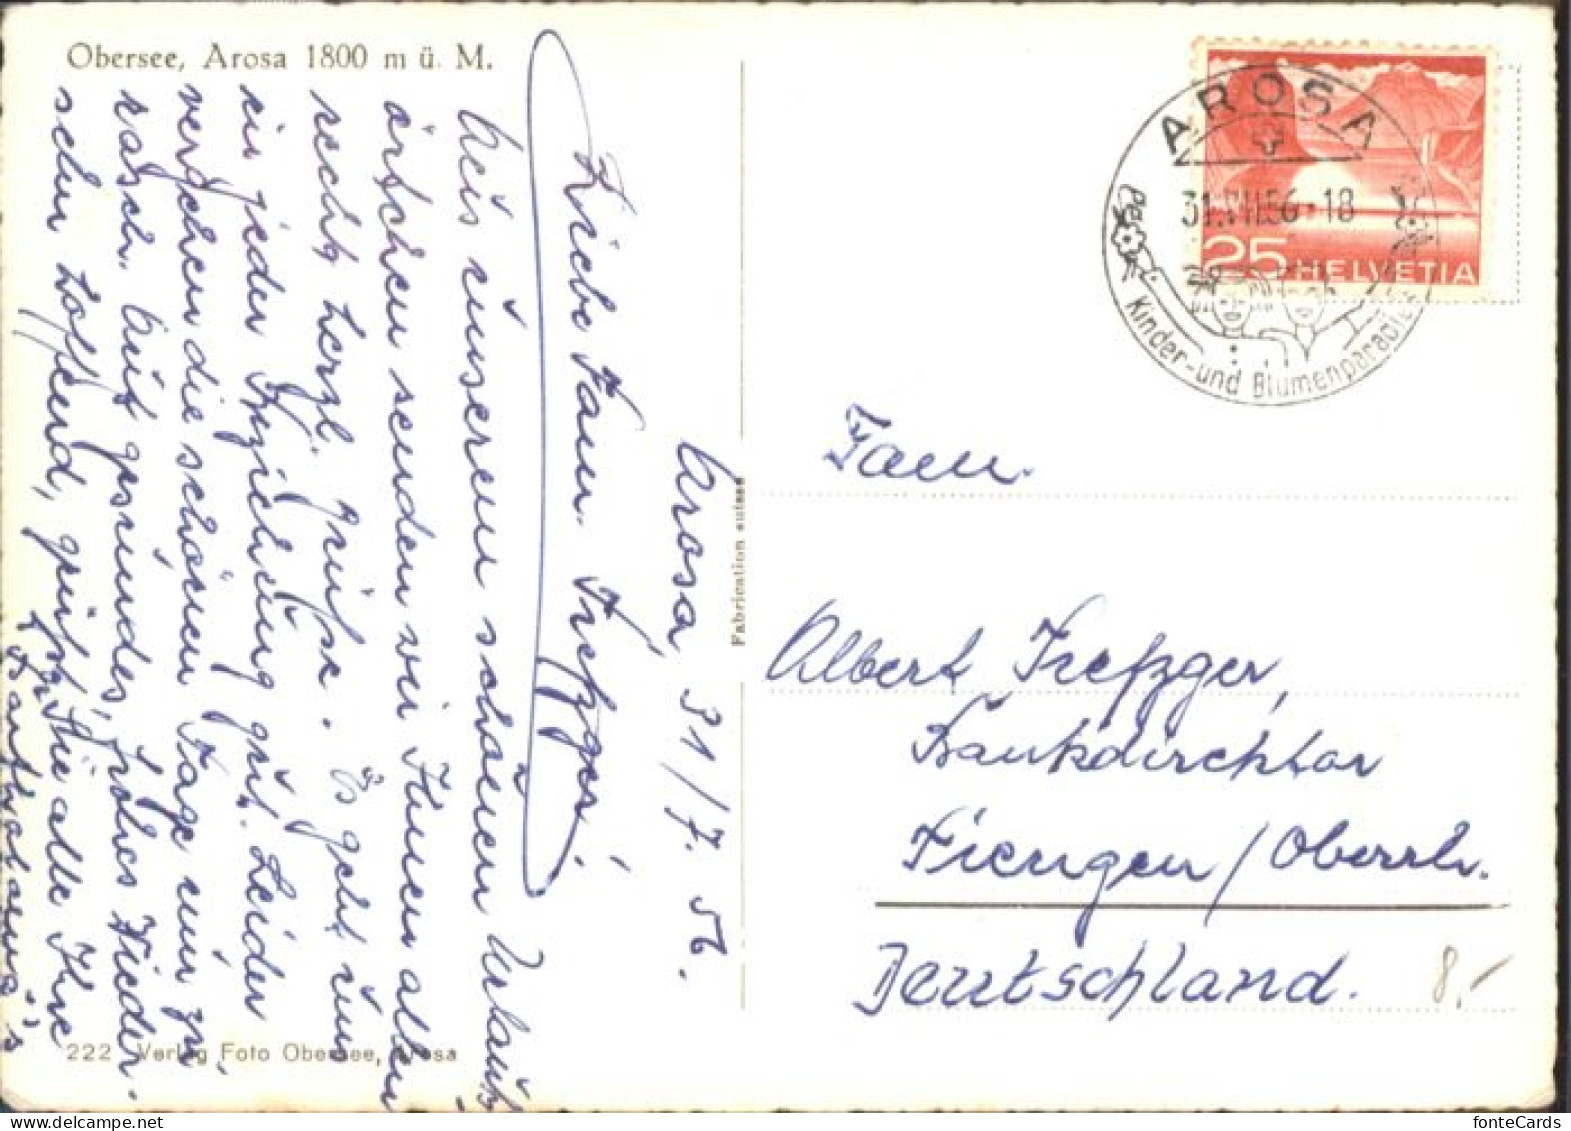 Obersee, Arosa 1800 m ü. M.
Arosa, 31/7. 56.
Liebe Fam. Trefzger.
Aus unserem schönen Urlaubs
örtchen senden wir Ihnen allen
recht herzl. Grüße. Es geht uns
in jeder Beziehung gut. Leider
vergehen die schönen Tage nur zu
rasch. Auf gesundes, frohes Wieder-
sehn hoffend, grüßen Sie alle Ihre
222 Verlag Foto Obersee, Arosa
Fabrication suisse
AROSA
31.VII.56-18
Kinder-und Blumenparadies
25 HELVETIA
Fam.
Albert Trefzger,
Bankdirektor
Tiengen/Oberrh.
Deutschland.
8.-
fonteCards